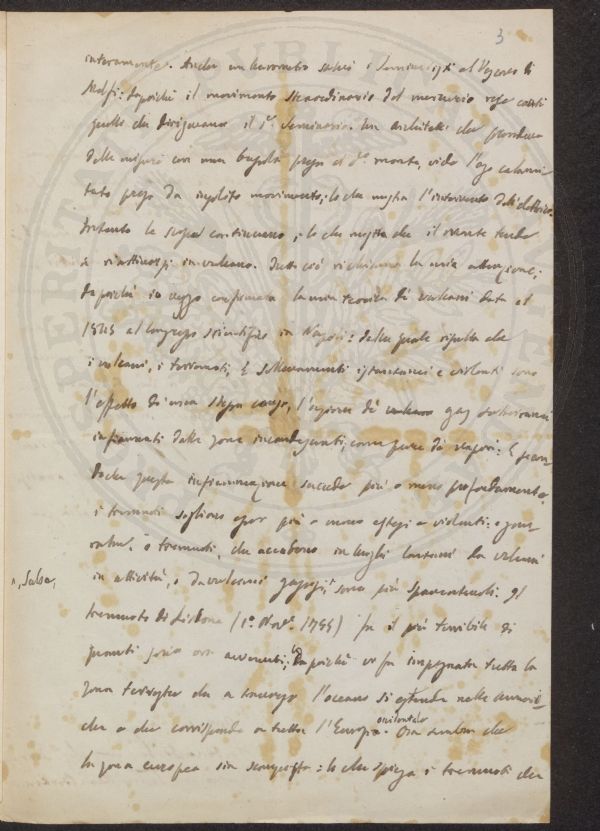 3
interamente. Anche un barometro salvò i Seminaristi al Vescovo di
Melfi: dapoichè il movimento straordinario del mercurio rese cauti
quelli che dirigevano il d.º Seminario. Un architetto che prendeva
delle misure con una bussola presso al d.º monte, vide l'ago calami
tato preso da insolito movimento; lo che mostra l'intervento dell'elettrico.
Intanto le scosse continuano; lo che mostra che il monte tende
a ripristinarsi in vulcano. Tutto ciò richiama la mia attenzione;
dapoichè io veggo confermata la mia teorica di vulcani data al
1845 al Congresso scientifico in Napoli: dalla quale risulta che
i vulcani, i terremoti, e sollevamenti istantanei e violenti sono
l'effetto di una stessa causa, l'azione di gas sotterranei
infiammati dalle zone incandescenti, come pure da vapori: E secon
dochè questa infiammazione succede più o meno profondamente,
i tremuoti sogliono esser più o meno estesi e violenti.
I tremuoti, che accadono in luoghi lontani da vulcani
in attività, o da vulcani gassosi, sono più spaventevoli. Il
n, Salse,
tremuoto di Lisbona (1.º Nov.e 1755) fu il più terribile di
quanti sono ora avvenuti; dapoichè vi fu impegnata tutta la
zona terrestre che a traverso l'oceano si estende nelle Americhe
che a che corrisponde a tutta l'Europa occidentale. Ora sembra che
la zona europea sia sconvolta: lo che spiega i tremuoti che